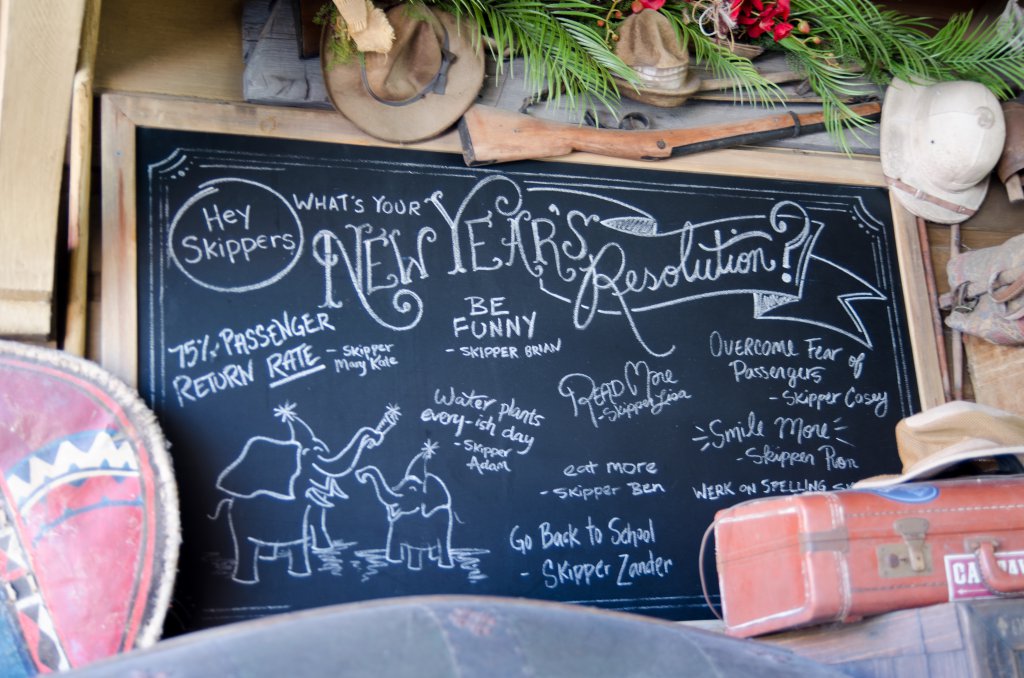 Hey
Skippers
WHAT'S YOUR
NEW YEAR'S Resolution?
75% PASSENGER
RETURN RATE - Skipper
Mary Kate
BE
FUNNY
- SKIPPER BRIAN
OVERCOME FEAR OF
PASSENGERS
- Skipper Casey
READ MORE
- Skipper Lisa
Water plants
every-ish day
- Skipper
Adam
Smile More
- Skipper
eat more
- SKIPPER BEN
WERK ON SPELLING
GO BACK TO SCHOOL
- SKIPPER ZANDER